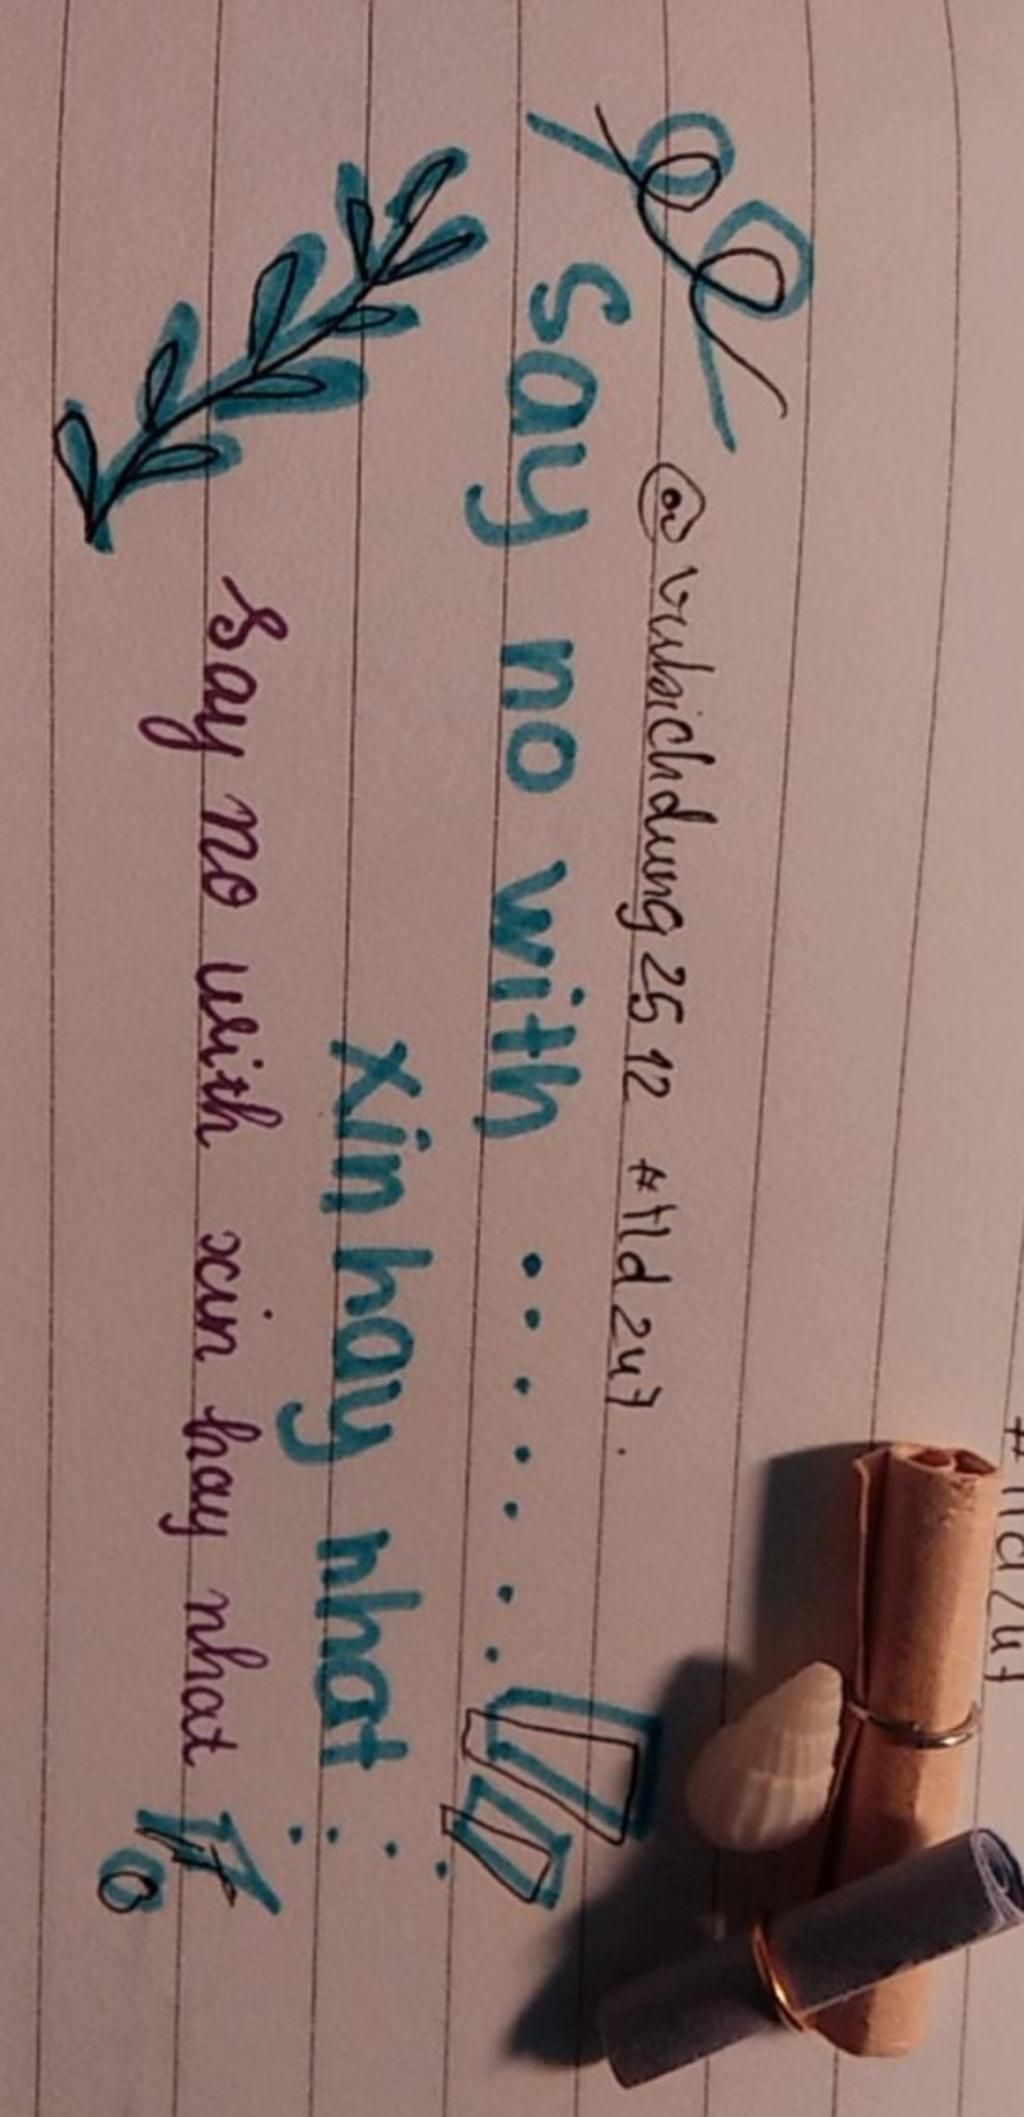 #tld247
@vubichdung2512 #tld247.
Say no with .......
xin hay nhat
say no with xin hay nhat